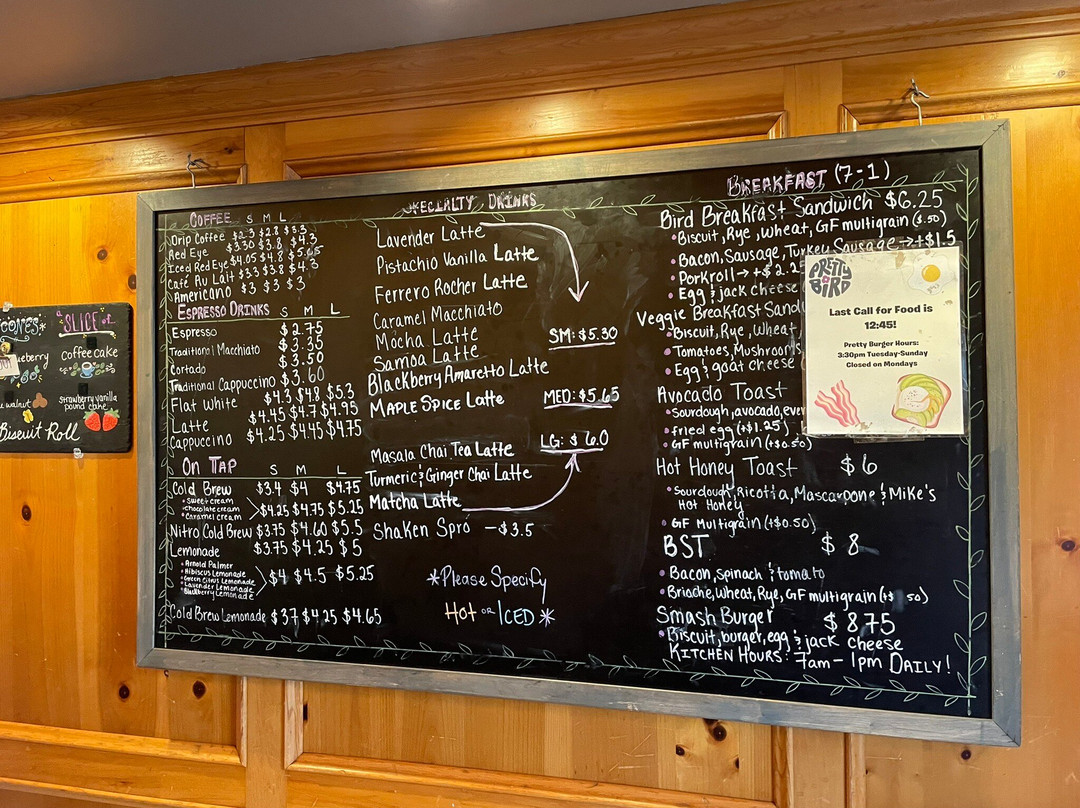 CONES
SLICE OF
ueberry
coffee cake
walnut
strawberry vanilla
pound cake
Biscuit Roll
COFFEE S M L
Drip Coffee $2.3 $2.8 $3.3
Red Eye $3.30 $3.8 $4.3
Iced Red Eye $4.05 $4.8 $5.65
Café Au Lait $3.3 $3.8 $4.3
Americano $3 $3 $3
ESPRESSO DRINKS S M L
Espresso $2.75
Traditional Macchiato $3.35
Cortado $3.50
Traditional Cappuccino $3.60
Flat White $4.3 $4.8 $5.3
Latte $4.45 $4.7 $4.95
Cappuccino $4.25 $4.45 $4.75
ON TAP S M L
Cold Brew $3.4 $4 $4.75
• sweet cream
• chocolate cream
• caramel cream
$4.25 $4.75 $5.25
Nitro Cold Brew $3.75 $4.60 $5.5
Lemonade $3.75 $4.25 $5
• Arnold Palmer
• Hibiscus Lemonade
• Green Citrus Lemonade
• Lavender Lemonade
• Blackberry Lemonade
$4 $4.5 $5.25
Cold Brew Lemonade $3.7 $4.25 $4.65
SPECIALTY DRINKS
Lavender Latte
Pistachio Vanilla Latte
Ferrero Rocher Latte
Caramel Macchiato
Mocha Latte
Samoa Latte
Blackberry Amaretto Latte
MAPLE SPICE Latte
SM: $5.30
MED: $5.65
LG: $6.0
Masala Chai Tea Latte
Turmeric & Ginger Chai Latte
Matcha Latte
Shaken Spro - $3.5
*Please Specify
Hot or ICED *
BREAKFAST (7-1)
Bird Breakfast Sandwich $6.25
• Biscuit, Rye, Wheat, GF multigrain ($.50)
• Bacon, Sausage, Turkey Sausage → +$1.5
• Porkroll → +$2.25
• Egg & jack cheese
Veggie Breakfast Sand
• Biscuit, Rye, Wheat
• Tomatoes, Mushrooms
• Egg & goat cheese
Avocado Toast
• Sourdough, avocado, ever
• fried egg (+$1.25)
• GF multigrain (+$0.50)
Hot Honey Toast $6
• Sourdough, Ricotta, Mascarpone & Mike's
Hot Honey
• GF Multigrain (+$0.50)
BST $8
• Bacon, Spinach & tomato
• Brioche, Wheat, Rye, GF multigrain (+$ 50)
Smash Burger $8.75
• Biscuit, burger, egg & jack cheese
KITCHEN HOURS: 7am - 1pm DAILY!
PRETTY
BIRD
Last Call for Food is
12:45!
Pretty Burger Hours:
3:30pm Tuesday-Sunday
Closed on Mondays